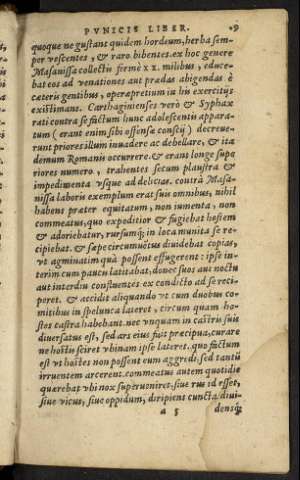 PVNICIS LIBER. 9
quoque ne gustant quidem hordeum, herba sem-
per vescentes, & raro bibentes. ex hoc genere
Masanissa collectis fermè xx. milibus, educe-
bat eos ad venationes aut prædas abigendas è
cæteris gentibus, operæpretium in his exercitijs
existimans. Carthaginienses verò & Syphax
rati contra se factum hunc adolescentis appara-
tum (erant enim sibi offensæ conscij) decreue-
runt priores illum inuadere ac debellare, & ita
demum Romanis occurrere. & erant longe supe
riores numero, trahentes secum plaustra &
impedimenta vsque ad delicias. contrà Masa-
nissa laboris exemplum erat suis omnibus, nihil
habens præter equitatum, non iumenta, non
commeatus, quo expeditior & fugiebat hostem
& adoriebatur, rursumq; in loca munita se reci-
piebat. & sæpe circumuectus diuidebat copias,
vt agminatim quà possent effugerent: ipse in-
terim cum paucis latitabat, donec suos aut noctu
aut interdiu confluentes ex condicto ad se reci-
peret. & accidit aliquando vt cum duobus co-
mitibus in spelunca lateret, circum quam ho-
stes castra habebant. nec vnquam in castris suis
diuersatus est, sed ars eius fuit præcipua, curare
ne hostis sciret vbinam ipse lateret. quo factum
est vt hostes non possent eum aggredi, sed tantū
irruentem arcerent. commeatus autem quotidie
quærebat vbi nox superueniret. siue rus id esset,
siue vicus, siue oppidum, diripiens cuncta diui-
a 5 densq;